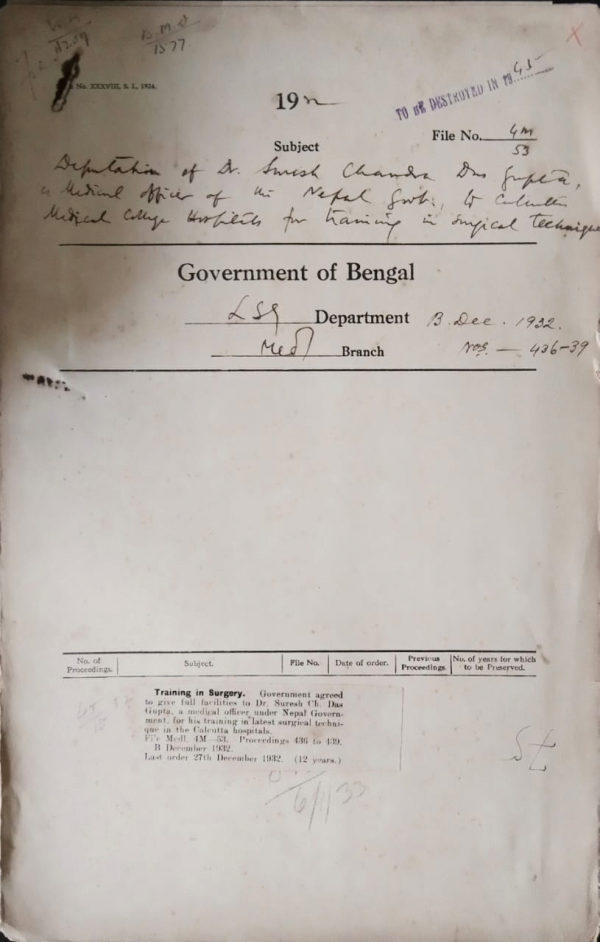 B.M.D
1577
No. XXXVIII, S. L., 1924.
19
TO BE DESTROYED IN 1945
File No. 4M
53
Subject
Deputation of Dr. Suresh Chandra Das Gupta,
a Medical officer of the Nepal Govt., to Calcutta
Medical College Hospitals for training in surgical technique
Government of Bengal
LSG Department B. Dec. 1932.
Med Branch Nos. — 436-39
No. of Proceedings. Subject. File No. Date of order. Previous Proceedings. No. of years for which to be Preserved.
Training in Surgery. Government agreed
to give full facilities to Dr. Suresh Ch. Das
Gupta, a medical officer under Nepal Govern-
ment, for his training in latest surgical techni-
que in the Calcutta hospitals.
File Medl. 4M—53. Proceedings 436 to 439.
B December 1932.
Last order 27th December 1932. (12 years.)
6/1/33